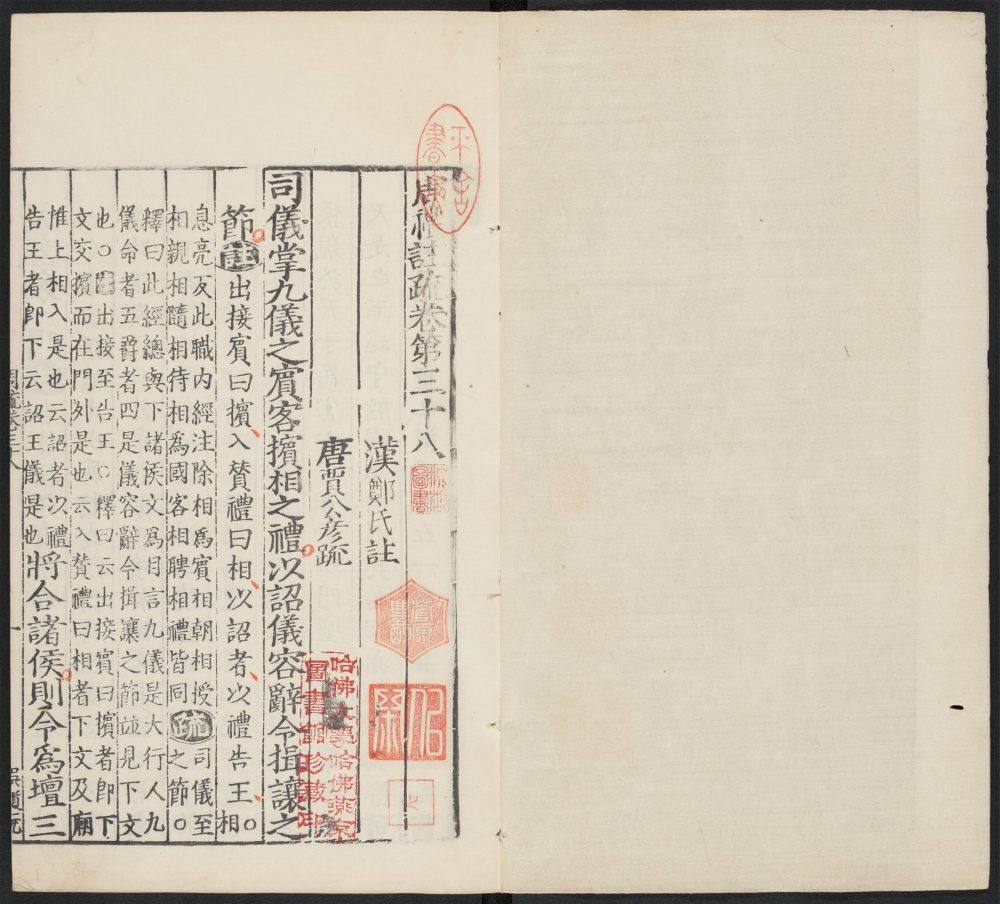 周禮註疏卷第三十八
漢鄭氏註
唐賈公彥疏
司儀掌九儀之賓客擯相之禮以詔儀容辭令揖讓之
節註出接賓曰擯入贊禮曰相以詔者以禮告王○相
息亮反此職内經注除相爲賓相朝相授
相親相隨相待相爲國客相聘相禮皆同疏司儀至之節○
釋曰此經總與下諸侯文爲目言九儀是大行人九
儀命者五爵者四是儀容辭令揖讓之節竝見下文
也○註出接至告王○釋曰云出接賓曰擯者即下
文交擯而在門外是也云入贊禮曰相者下文及廟
惟上相入是也云詔者以禮
告王者即下云詔王儀是也將合諸侯則令爲壇三
周疏卷三十八
一
哈佛大學哈佛燕京
圖書館珍藏印